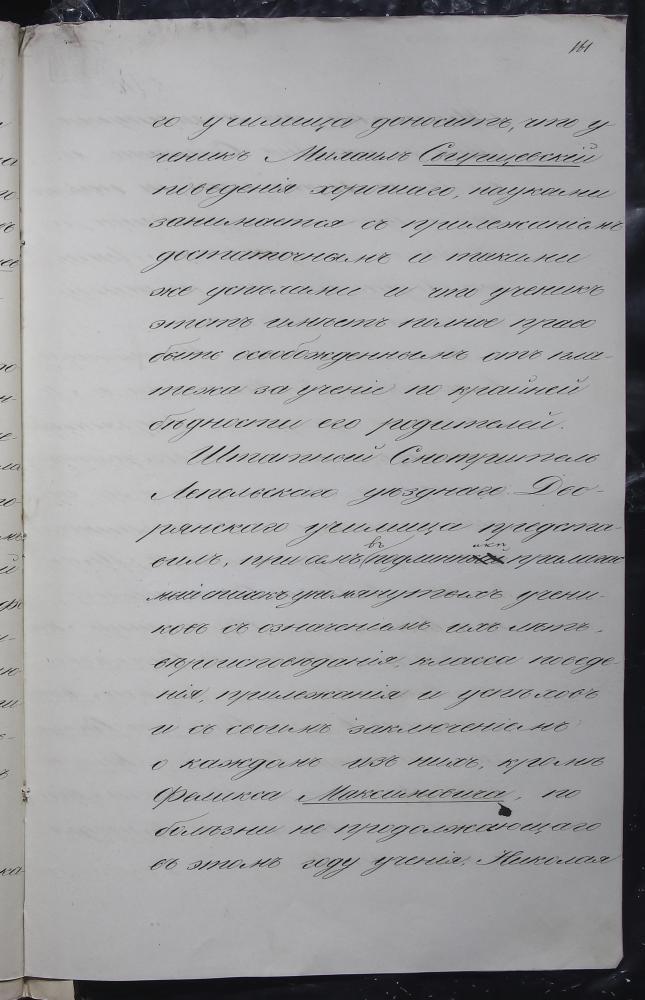 161
го училища доноситъ, что у
ченикъ Михаилъ
поведенія хорошаго, науками
занимается съ прилежаніемъ
достаточнымъ и такими
же успехами и что ученикъ
этотъ имѣетъ полное право
быть освобожденнымъ отъ пла-
тежа за ученіе по крайней
бѣдности его родителей.
Штатный Смотритель
Лепельскаго уѣзднаго Дво-
рянскаго училища предста-
вилъ, при семъ въ прилагае
мый списокъ упомянутыхъ учени-
ковъ съ означеніемъ ихъ лѣтъ,
вѣроисповѣданія, класса поведе-
нія, прилежанія и успѣховъ
и съ своимъ заключеніемъ
о каждомъ изъ нихъ, кромѣ
Феликса Максимовича, по
болѣзни не продолжающаго
въ этомъ году ученія, Николая